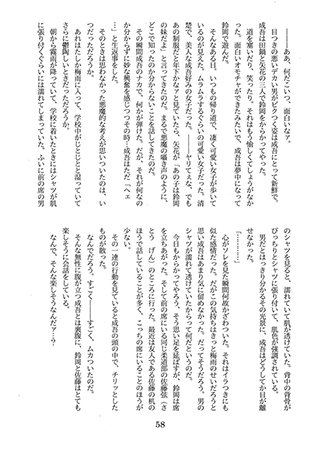 ――ああ、何だこいつ、面白いなァ。
目つきの悪いデカい男がビクつく姿は成吾にとって新鮮で、
成吾は田鍋と矢花の三人で鈴岡をからかってやった。
道を塞いだり、笑ったり、それはもう愉しくてしょうがなか
った。面白いオモチャができたみたいで、成吾は夢中になって
鈴岡で遊んだ。
そんなある日、いつもの帰り道で、凄く可愛い女子が歩いて
いるのが見えた。ムラムラするくらいの可愛い女子だった。清
楚で、美人な成吾好みの女子だった。――ヤリてえな、でも
あの制服だと年下かな？と見ていたら、矢花が「あの子は鈴岡
の妹だよ」と言ってきたのだ。まるで悪魔の囁き声のように、
どこで知ったのか分からないことを話してきたのだ。
その瞬間成吾のナカで、何かが弾けた。だが、それが何なの
かわからずに、ただ興奮を感じつつその時、成吾はただ「ヘェ
…」と生返事をした。
そのときは思わなかった悪魔的な考えが思いついたのは、い
つだっただろうか。
あれはたしか梅雨に入って、学校中がじとじとと湿っていて
さらに鬱陶しいときだっただろうか。
朝から霧雨が降っていて、学校に着いたときにはシャツが肌
に張り付くぐらいには濡れてしまっていた。ふいに前の席の男
のシャツを見ると、濡れていて肌が透けていた。背中の背骨が
ぴっちりとシャツに張り付いて、肌色が強調されている。
男だとはっきり分かるその光景に、成吾はどうしてか目が離
せなかった。
「………」
心がソレを見た瞬間何故かざわついた。それはイラつきにも
似た感情だった。だがこの気持ちはきっと梅雨のせいだろうと
思い成吾はあまり気に留めなかった。だってそうだろう。男の
シャツが濡れて透けていたからって何だというのだ。
今日もからかってやろう。そう思い足を延ばすが、鈴岡は席
を立ちあがった。そして前の席にいる同じ柔道部の佐藤弦（さ
とう　げん）のところに行った。最近は友人である佐藤の机の
ほうで話していることが多く、こっちの席にいることのほうが
少ない。
その一連の行動を見ていると成吾の頭の中で、チリッとした
ものが散った。
なんでだろう。すごく――すごく、ムカついたのだ。
そんな無性に腹が立つ成吾とは裏腹に、鈴岡と佐藤はとても
楽しそうに会話をしている。
なんで、そんな楽しそうなんだァ？
58